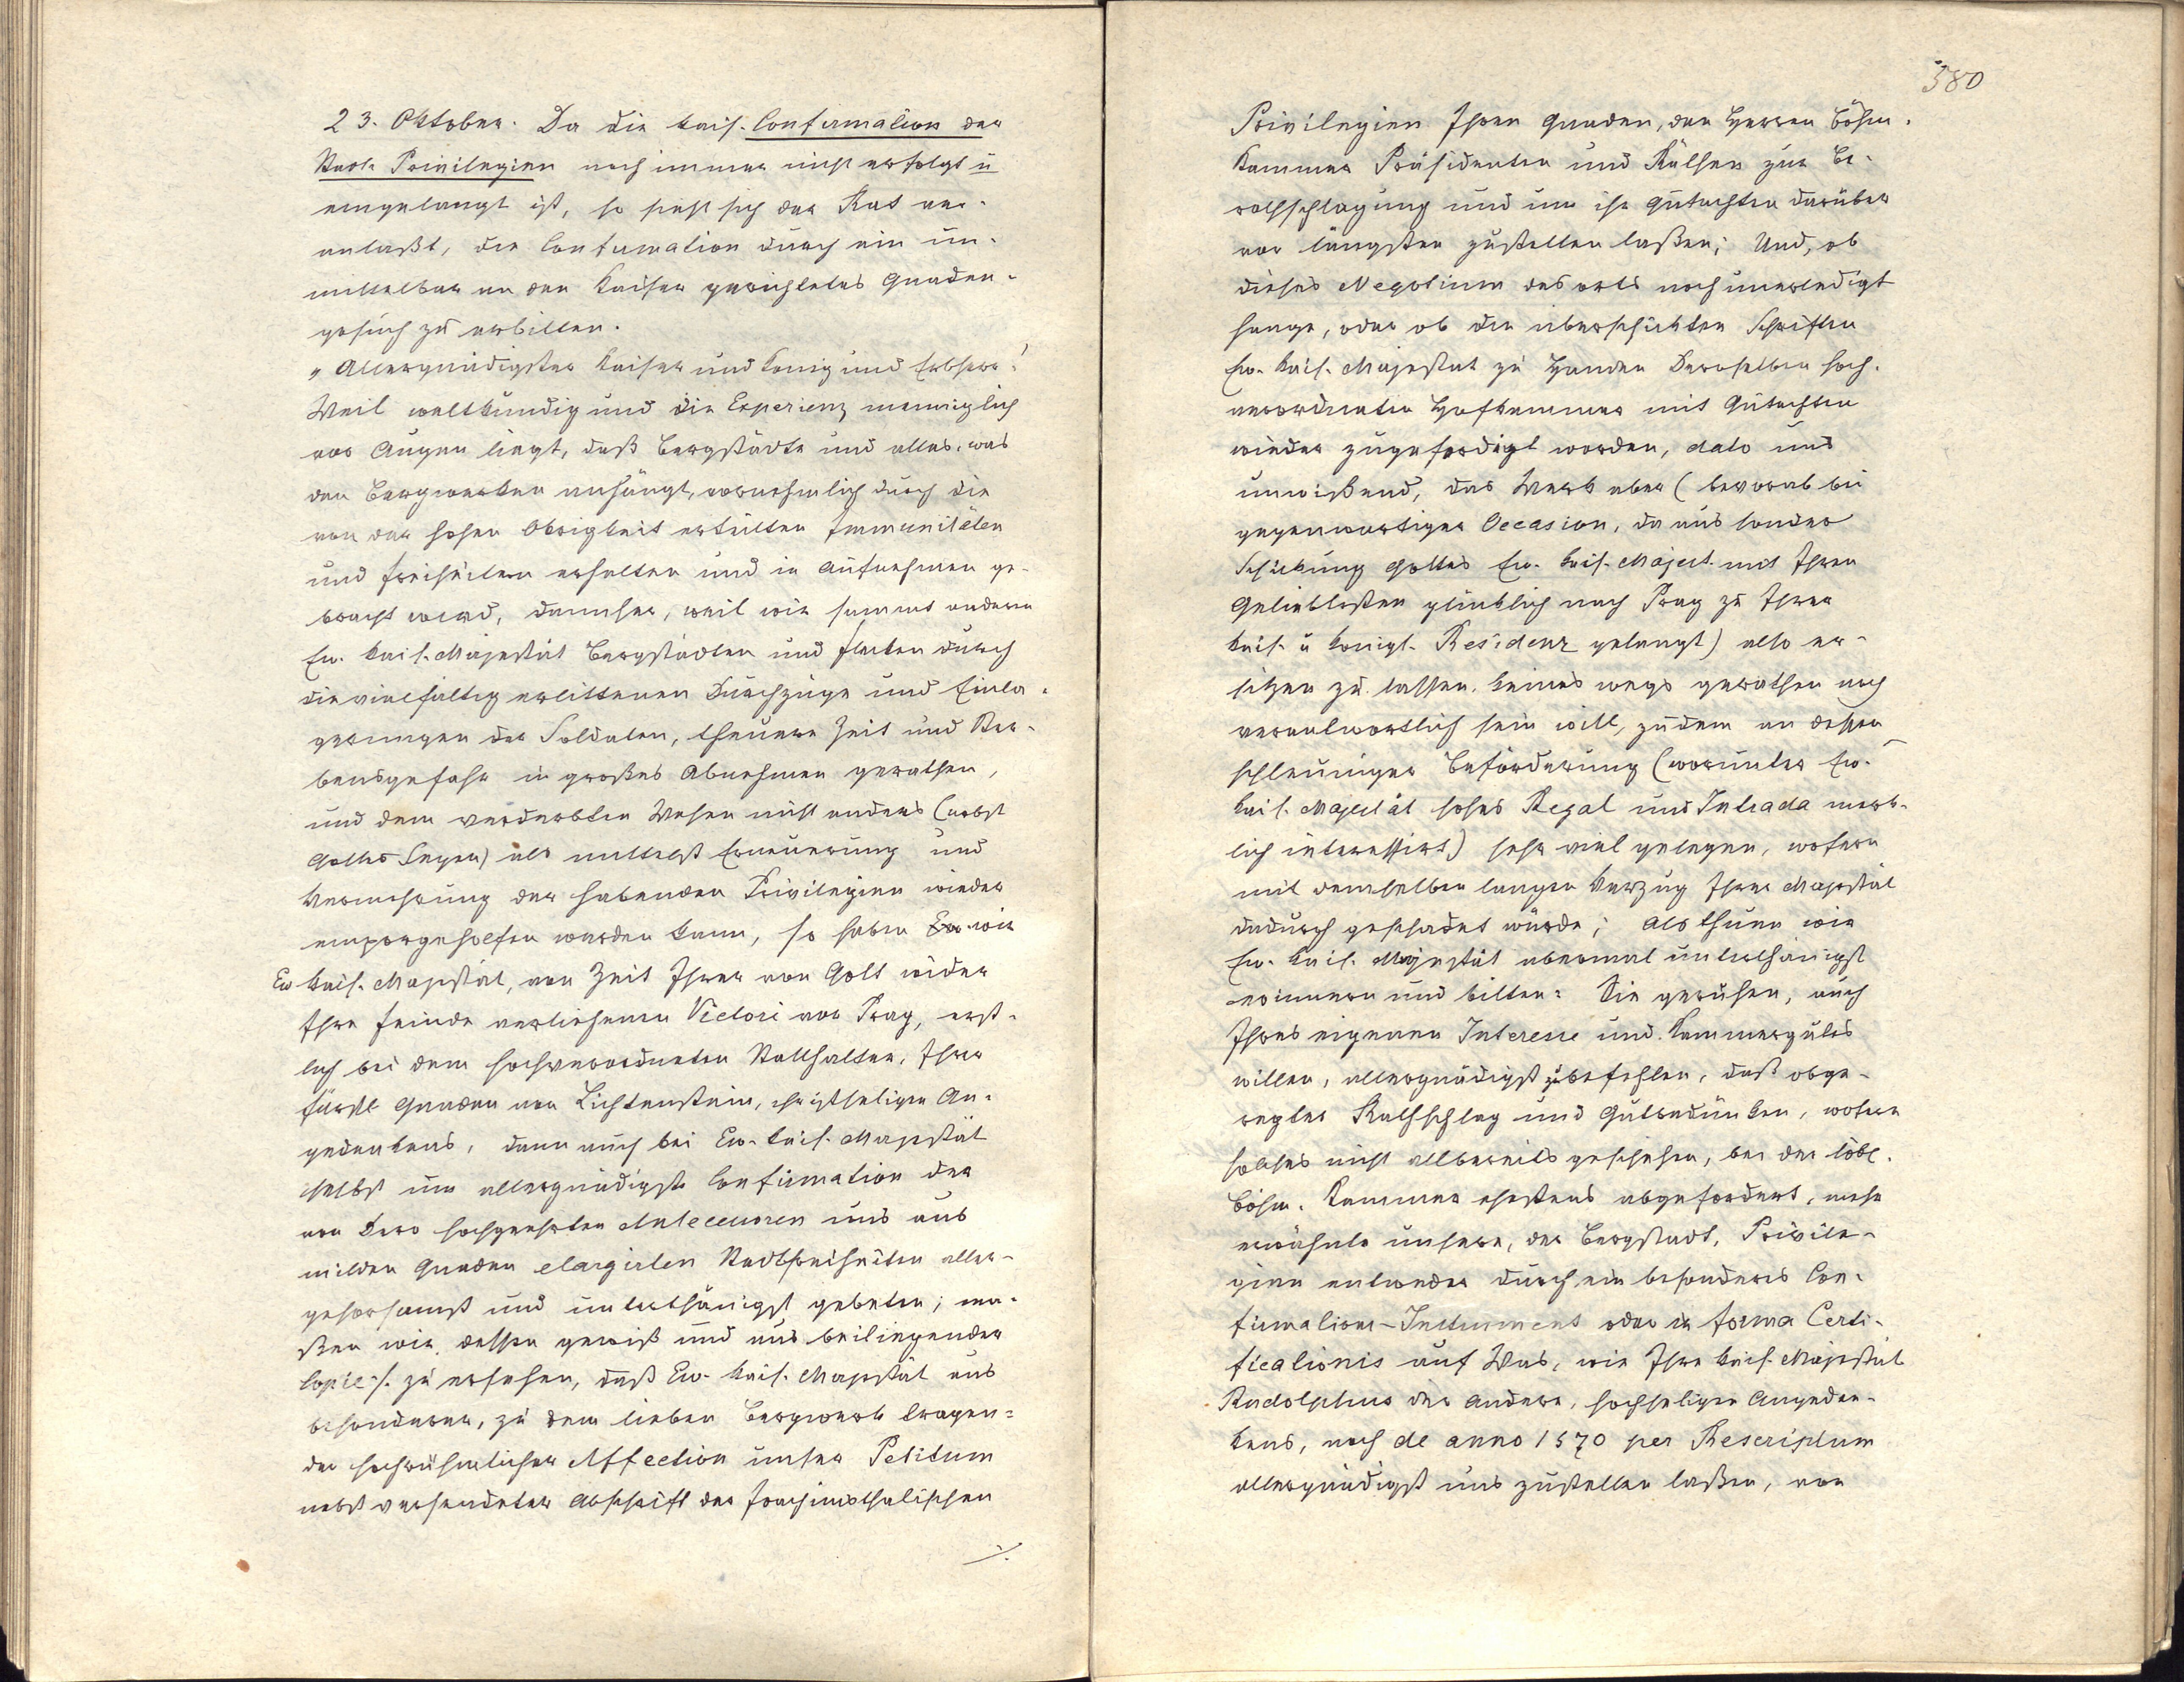 23. Oktober. Da die kais. Confirmation der
Stadt Privilegien noch immer nicht erfolgt u
eingelangt ist, so sieht sich der Rat ver-
anlaßt, die Confirmation durch ein un-
mittelbar an den Kaiser gerichtetes Gnaden-
gesuch zu erbitten.
"Allergnädigster Kaiser und König und Erbherr!
Weil weltkundig und die Experienz menniglich
vor Augen liegt, daß Bergstädte und alles, was
den Bergwerken anhängt, vornehmlich durch die
von der hohen Obrigkeit ertheilten Immunitäten
und Freiheiten erhalten und in Aufnehmen ge-
bracht wird, dannher, weil wir sammt andern
Ew. kais. Majestät Bergstädten und Flecken durch
die vielfältig erlittenen Durchzüge und Einla-
gerungen der Soldaten, theuere Zeit und Ster-
bensgefahr in großes Abnehmen gerathen,
und dem verderbten Wesen nicht anders (nebst
Gottes Segen) als mittelst Erneuerung und
Vermehrung der habenden Privilegien wieder
emporgeholfen werden kann, so haben Ew. wir
Ew kais. Majestät, von Zeit Ihrer von Gott wider
Ihre Feinde verliehenen Victori vor Prag, erst-
lich bei dem hochverordneten Statthalter, Ihrer
fürstl Gnaden von Lichtenstein, christseligen An-
gedenkens, dann auch bei Ew. kais. Majestät
selbst um allergnädigste Confirmation der
von Dero hochgeehrten Antecessoren uns aus
milden Gnaden elargirten Stadtfreiheiten aller-
gehorsamst und unterthänigst gebeten; ma-
ßen wir dessen gewiß und aus beiliegender
Copie ·/. zu ersehen, daß Ew. kais. Majestät aus
besonderer, zu dem lieben Bergwerk tragen-
der hochrühmlicher Affection unser Petitum
nebst versendeter Abschrift der Joachimsthalischen
·/.
380
Privilegien Ihren Gnaden, den Herren Böhm.
Kammer Präsidenten und Räthen zur Be-
rathschlagung und um ihr Gutachten darüber
vor längsten zustellen laßen; Und, ob
dieses Negotium des orts noch unerledigt
hange, oder ob die überschickten Schriften
Ew. kais. Majestät zu Handen Deroselben hoch-
verordneten Hofkammer mit Gutachten
wieder zugefertigt worden, dato uns
unwißend, das Werk aber (bevorab bei
gegenwärtiger Occasion, da aus sonder
Schickung Gottes Ew. kais. Majest. mit Ihren
Geliebtesten glücklich nach Prag zu Ihrer
kais. u königl. Residenz gelangt) also er-
sitzen zu lassen, keines wegs gerathen noch
verantwortlich sein will, zudem an dessen
schleuniger Beförderung (worunter Ew.
kais. Majestät hohes Regal und Intrada merk-
lich interessirt) sehr viel gelegen, wofern
mit demselben langen Verzug Ihrer Majestät
dadurch geschadet würde; Als thuen wir
Ew. kais. Majestät abermal unterthänigst
erinnern und bitten: Sie geruhen, auch
Ihres eigenen Interesse und Kammerguts
willen, allergnädigst zu befehlen, daß obge-
regter Rathschlag und Gutbedünken, wofern
solches nicht allbereits geschehen, bei der löbl.
Böhm. Kammer ehestens abgefordert, mehr
erwähnte unsere, der Bergstadt, Privile-
gien entweder durch ein besonderes Con-
firmations-Instrument oder in forma Certi-
ficationis auf Was, wie Ihre kais. Majestät
Rudolphus der Andere, hochseligen Angeden-
kens, noch de anno 1570 per Rescriptum
allergnädigst uns zustellen laßen, von